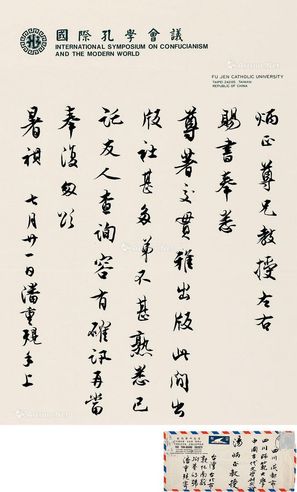 國際孔學會議
INTERNATIONAL SYMPOSIUM ON CONFUCIANISM
AND THE MODERN WORLD
FU JEN CATHOLIC UNIVERSITY
TAIPEI 24205 TAIWAN
REPUBLIC OF CHINA
炳正尊兄教授左右
賜書奉悉
尊著交貫雅出版此間出
版社甚多弟不甚熟悉已
託友人查詢容有確訊再當
奉復匆頌
暑祺 七月廿一日潘重規手上
四川成都市
四川師範大學
湯炳正教授